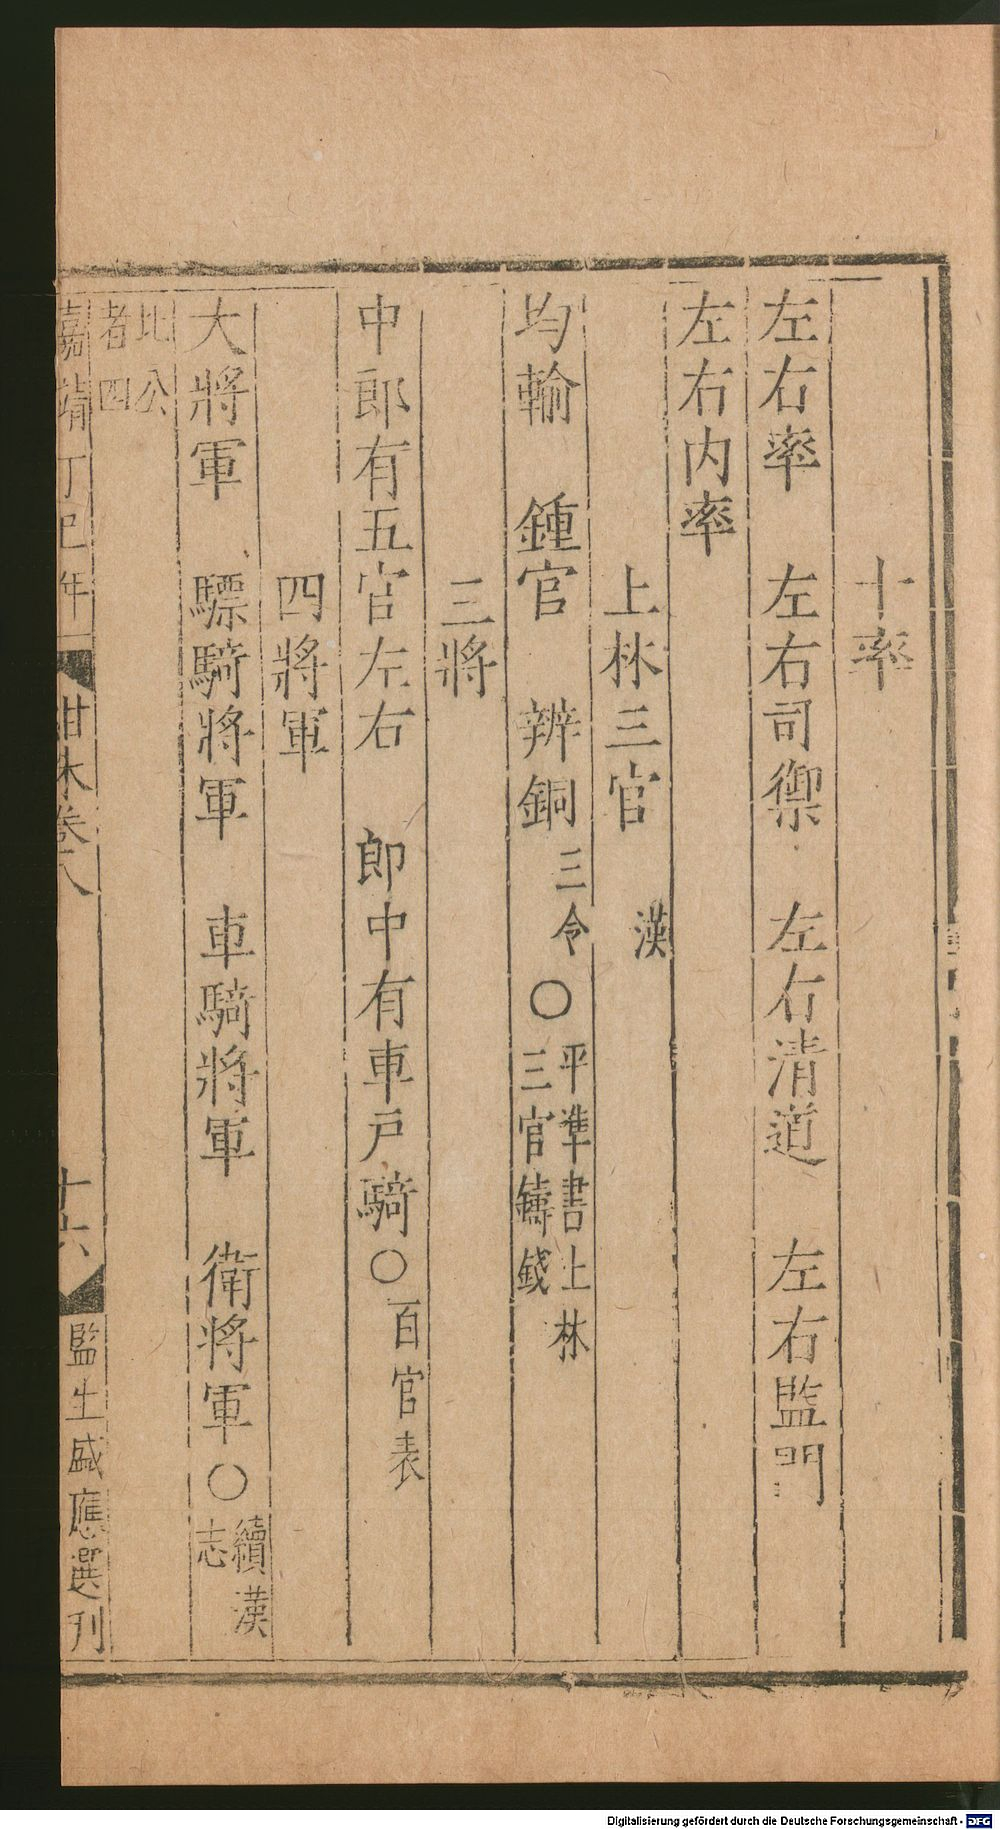 十率
左右率　左右司禦　左右清道　左右監門
左右内率
上林三官　漢
均輸　鍾官　辨銅　三令○平準書上林
三官鑄錢
三將
中郎有五官左右　郎中有車戶騎○百官表
四將軍
大將軍　驃騎將軍　車騎將軍　衛將軍○續漢
志
比公
者四
嘉靖丁巳年　紺木卷八　十六　監生盛應選刊
Digitalisierung gefördert durch die Deutsche Forschungsgemeinschaft - DFG